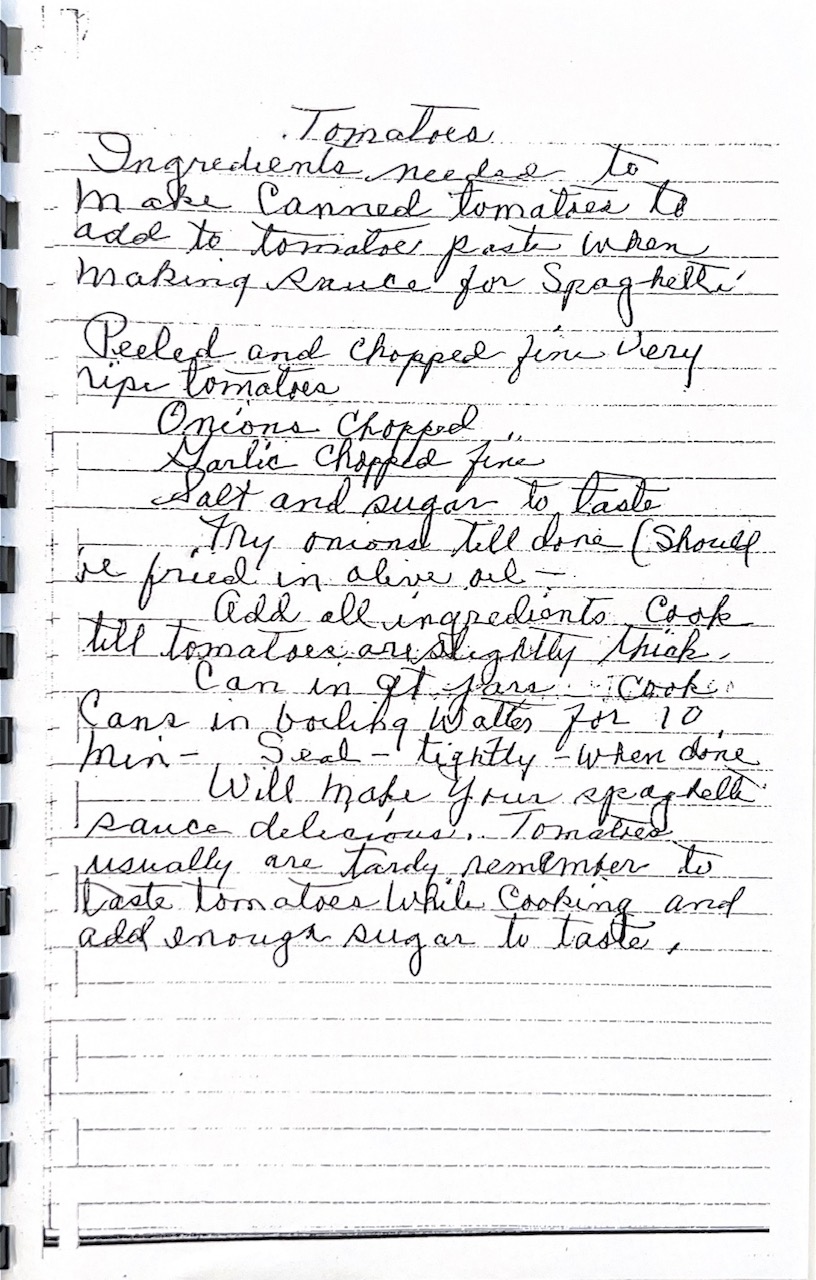 Tomatoes
Ingredients needed to
Make Canned tomatoes to
add to tomatoe paste when
Making sauce for Spaghetti
Peeled and chopped fine very
ripe tomatoes
Onions Chopped
Garlic Chopped fine
Salt and sugar to taste
Fry onions till done (Should
be fried in olive oil –
Add all ingredients Cook
till tomatoes are slightly thick.
Can in qt jars Cook
Cans in boiling Watter for 10
Min – Seal – tightly – when done
Will make your spaghetti
sauce delicious. Tomatoes
usually are tardy remember to
taste tomatoes While Cooking and
add enough sugar to taste.